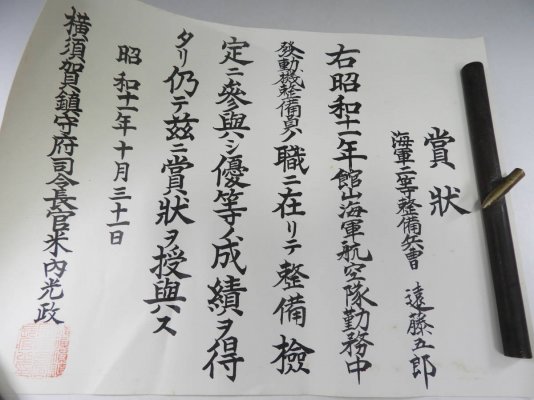 賞狀
海軍二等整備兵曹 遠藤五郎
右昭和十一年館山海軍航空隊勤務中
發動機整備員ノ職ニ在リテ整備檢
定ニ參與シ優等ノ成績ヲ得
タリ仍テ茲ニ賞狀ヲ授與ス
昭和十一年十月三十一日
横須賀鎮守府司令長官米内光政